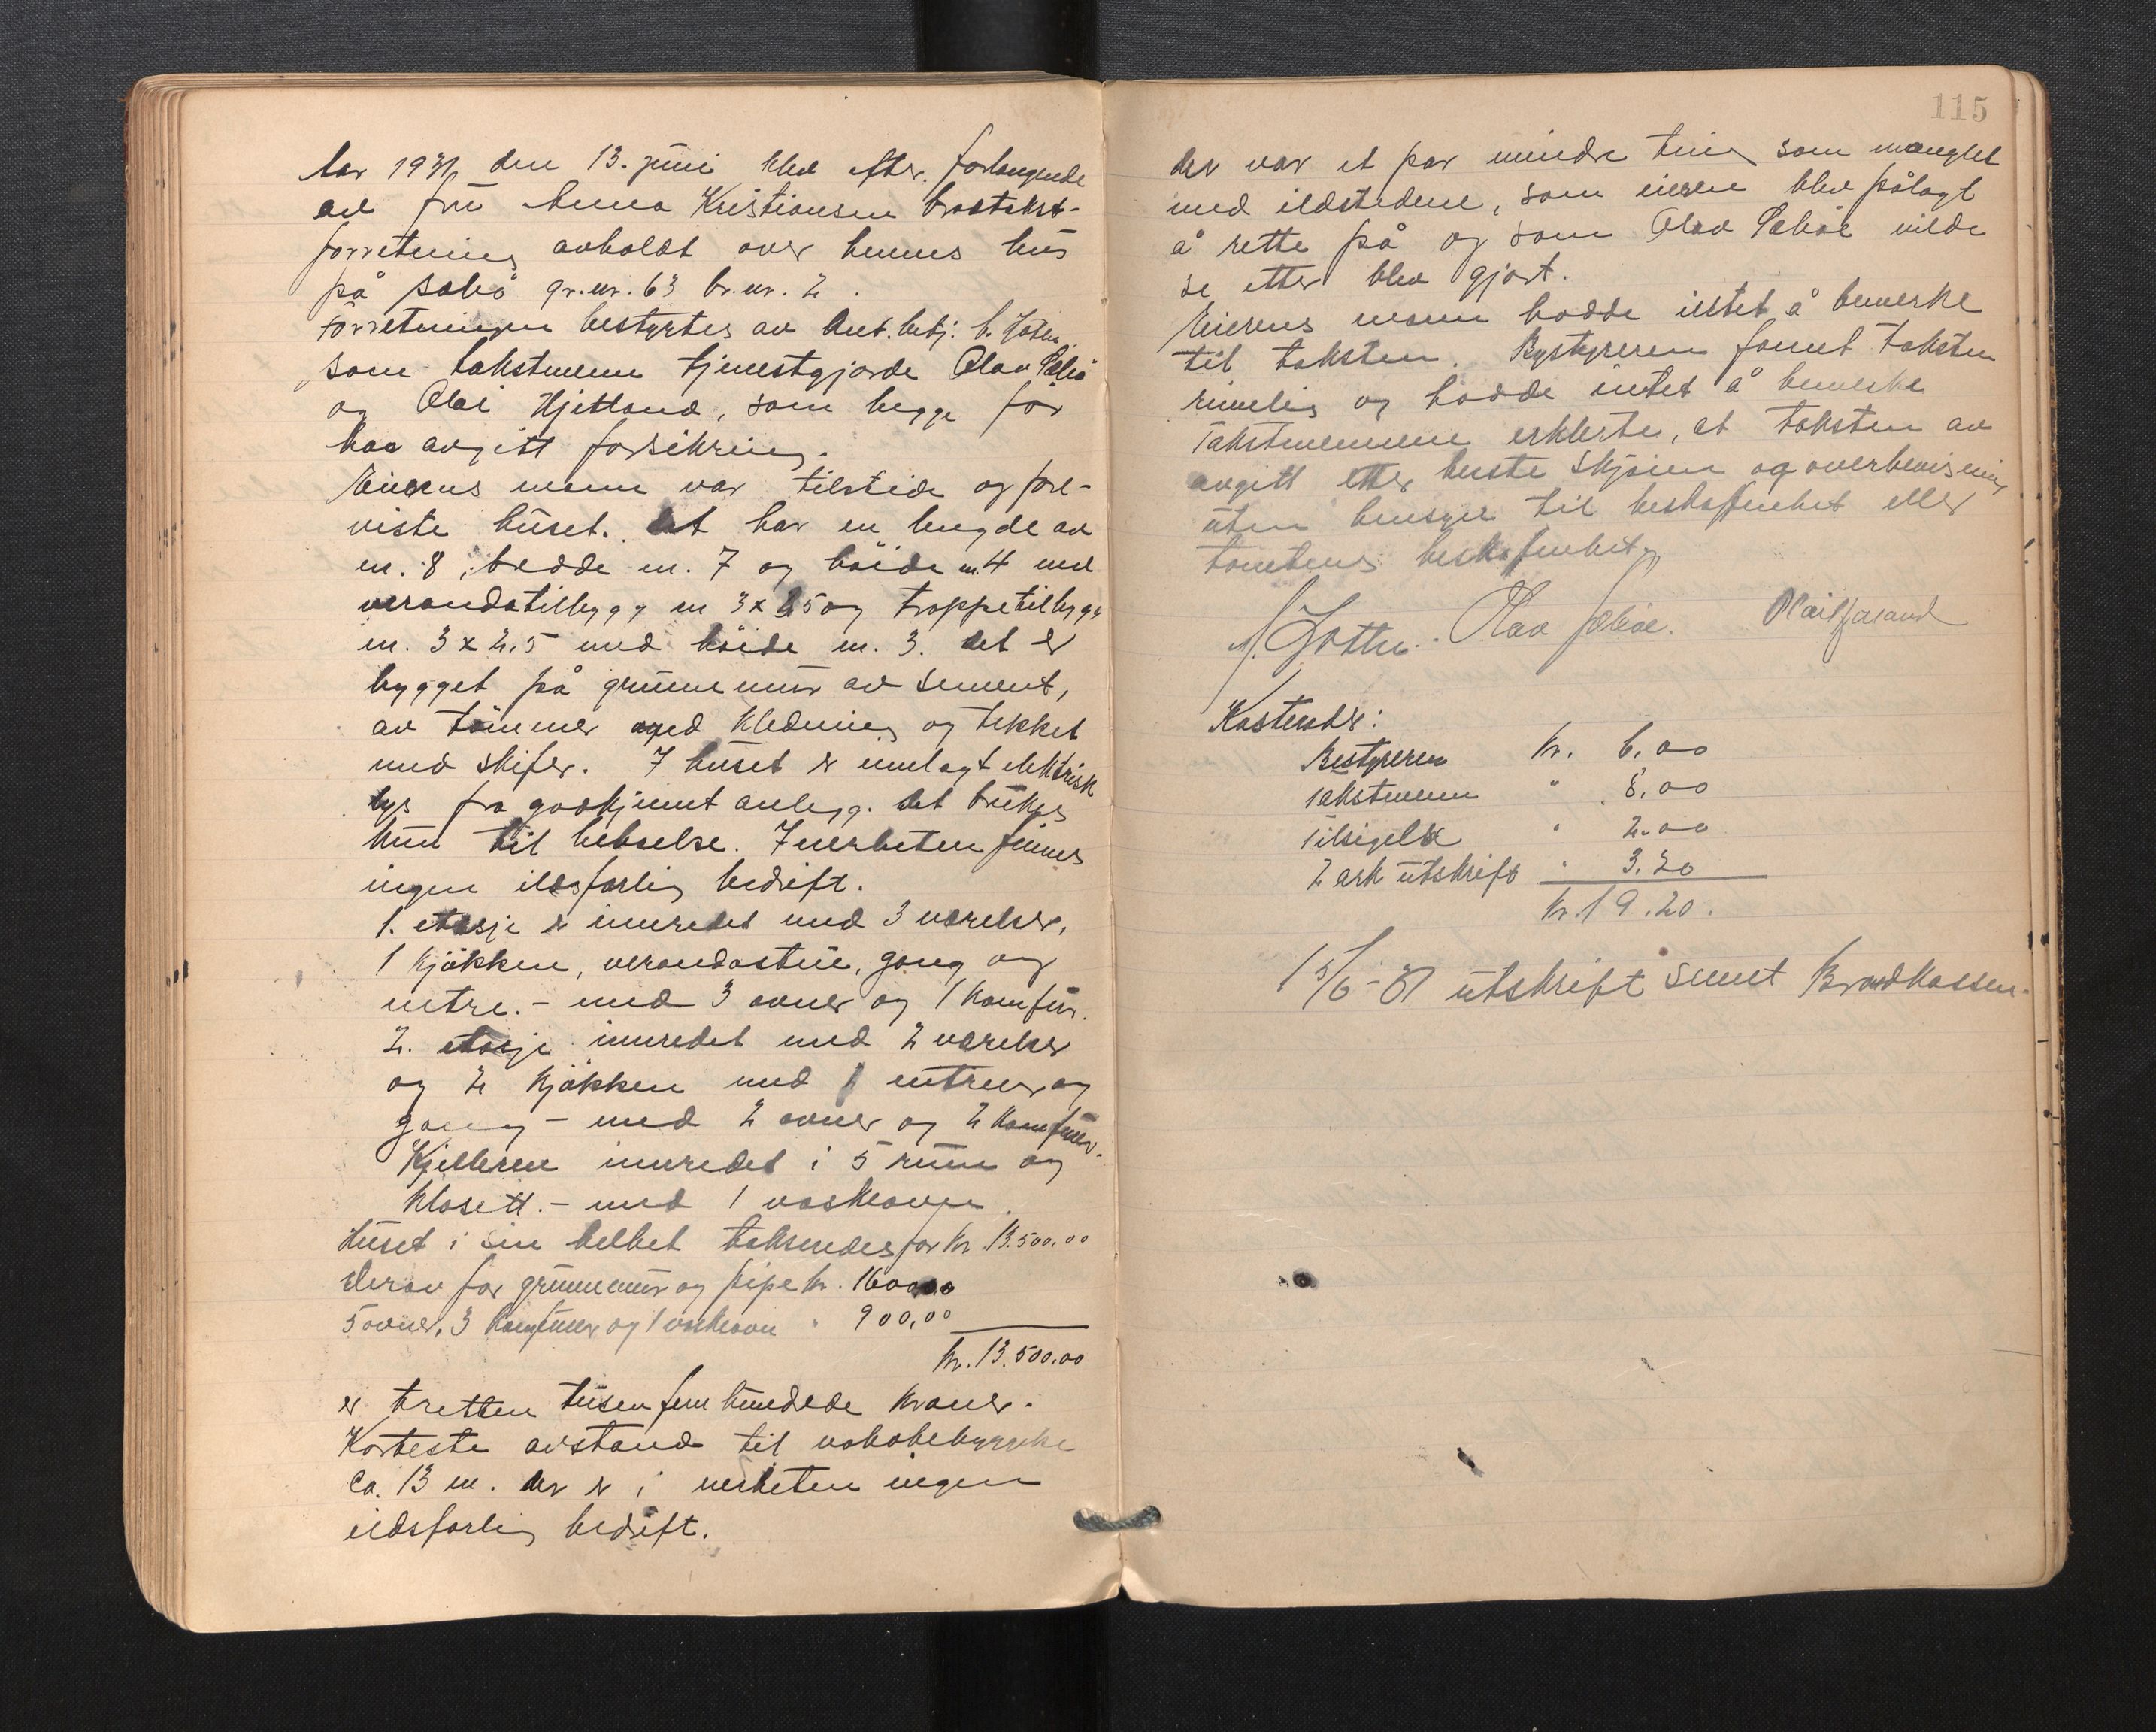 Aar 1931 den 13. juni blev efter forlangende
av fru Anna Kristiansen branntakst-
forretning avholdt over hennes hus
på Sæbø gr.nr. 63 br.nr. 2.
Forretningen bestyrtes av
som takstmenn tjenestgjorde Olav Sæbø
og Olai Hjetland, som begge før
har avgitt forsikring.
Eierens mann var tilstede og fore-
viste huset. Det har en lengde av
m. 8, bredde m. 7 og höide m. 4 med
verandatilbygg m 3x2,5 og trappetilbygg
m. 3 x 2,5 med höide m. 3. Det er
bygget på grunnmur av sement,
av tömmer med kledning og tekket
med skifer. I huset er innlagt elektrisk
lys fra godkjennt anlegg. Det brukes
kun til beboelse. I nerheten finnes
ingen ildsfarlig bedrift.
1. etasje er innredet med 3 værelser,
1 kjökken, verandastue, gang og
entre. - med 3 ovner og 1 komfur.
2. etasje innredet med 2 værelser
og 2 kjökken med 1 entreer og
gang - med 2 ovner og 2 komfurer.
Kjelleren innredet i 5 rum og
klosett. - med 1 vaskeovn.
Huset i sin helhet takseres for kr. 13.500,00
Derav for grunnmur og pipe kr. 1600,00
5 ovner, 3 komfurer og 1 vaskeovn " 900,00
kr. 13.500,00
er tretten tusen fem hundrede kroner.
Korteste avstand til nabobebyggelse
ca. 13 m. Der er i nerheten ingen
ildsfarlig bedrift.
115
Der var et par mindre ting som manglet
med ildstedene, som eieren blev pålagt
å rette på og som Olav Sæbøe vilde
se etter blev gjort.
Eierens mann hadde intet å bemerke
til taksten. Bestyreren fannt taksten
rimelig og hadde intet å bemerke
Takstmennene erklerte, at taksten av
avgitt etter beste skjönn og overbevisning
uten hensyn til beskaffenhet eller
tomtens beskaffenhet.
Olav Sæbøe.
Kostender:
Bestyreren kr. 6.00
Takstmenn " 8.00
Tilsigelse " 2.00
2 ark utskrift " 3.20
kr. 19.20.
15/6-31 utskrift sennt Brandkassen.